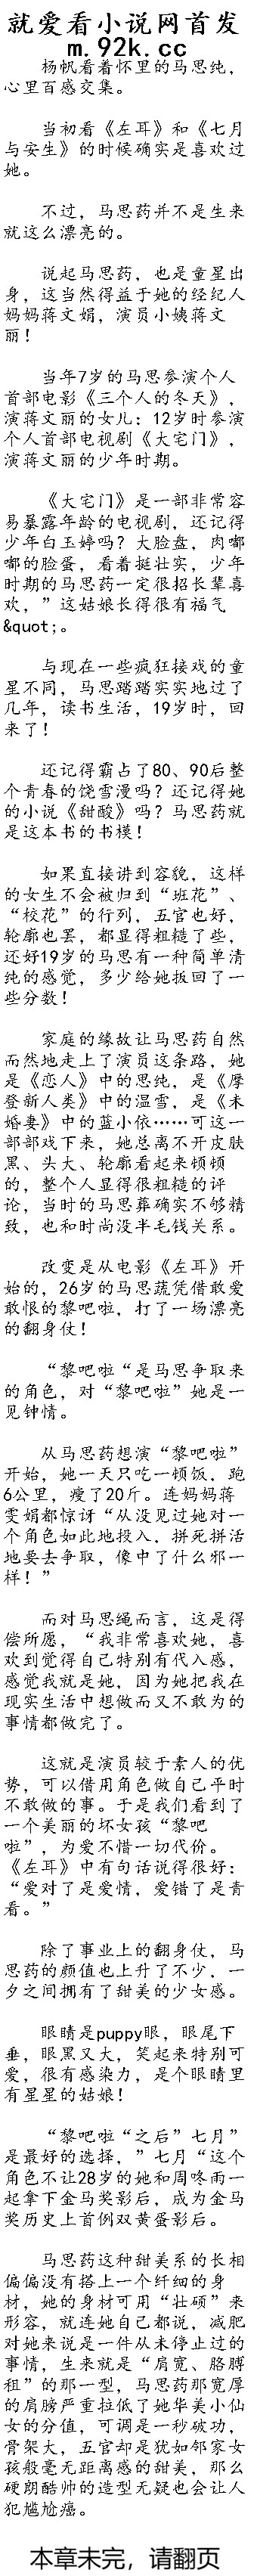 就爱看小说网首发
m.92k.cc
杨帆看着怀里的马思纯，
心里百感交集。
当初看《左耳》和《七月
与安生》的时候确实是喜欢过
她。
不过，马思药并不是生来
就这么漂亮的。
说起马思药，也是童星出
身，这当然得益于她的经纪人
妈妈蒋文娟，演员小姨蒋文
丽！
当年7岁的马思参演个人
首部电影《三个人的冬天》，
演蒋文丽的女儿：12岁时参演
个人首部电视剧《大宅门》，
演蒋文丽的少年时期。
《大宅门》是一部非常容
易暴露年龄的电视剧，还记得
少年白玉婷吗？大脸盘，肉嘟
嘟的脸蛋，看着挺壮实，少年
时期的马思药一定很招长辈喜
欢，”这姑娘长得很有福气
&quot;。
与现在一些疯狂接戏的童
星不同，马思踏踏实实地过了
几年，读书生活，19岁时，回
来了！
还记得霸占了80、90后整
个青春的饶雪漫吗？还记得她
的小说《甜酸》吗？马思药就
是这本书的书模！
如果直接讲到容貌，这样
的女生不会被归到“班花”、
“校花”的行列，五官也好，
轮廓也罢，都显得粗糙了些，
还好19岁的马思有一种简单清
纯的感觉，多少给她扳回了一
些分数！
家庭的缘故让马思药自然
而然地走上了演员这条路，她
是《恋人》中的思纯，是《摩
登新人类》中的温雪，是《未
婚妻》中的蓝小依……可这一
部部戏下来，她总离不开皮肤
黑、头大、轮廓看起来顿顿
的，整个人显得很粗糙的评
论，当时的马思葬确实不够精
致，也和时尚没半毛钱关系。
改变是从电影《左耳》开
始的，26岁的马思蔬凭借敢爱
敢恨的黎吧啦，打了一场漂亮
的翻身仗！
“黎吧啦“是马思争取来
的角色，对“黎吧啦”她是一
见钟情。
从马思药想演“黎吧啦”
开始，她一天只吃一顿饭，跑
6公里，瘦了20斤。连妈妈蒋
雯娟都惊讶“从没见过她对一
个角色如此地投入，拼死拼活
地要去争取，像中了什么邪一
样！”
而对马思绳而言，这是得
偿所愿，“我非常喜欢她，喜
欢到觉得自己特别有代入感，
感觉我就是她，因为她把我在
现实生活中想做而又不敢为的
事情都做完了。
这就是演员较于素人的优
势，可以借用角色做自己平时
不敢做的事。于是我们看到了
一个美丽的坏女孩“黎吧
啦”，为爱不惜一切代价。
《左耳》中有句话说得很好：
“爱对了是爱情，爱错了是青
看。”
除了事业上的翻身仗，马
思药的颜值也上升了不少，一
夕之间拥有了甜美的少女感。
眼睛是puppy眼，眼尾下
垂，眼黑又大，笑起来特别可
爱，很有感染力，是个眼睛里
有星星的姑娘！
“黎吧啦“之后”七月”
是最好的选择，”七月“这个
角色不让28岁的她和周咚雨一
起拿下金马奖影后，成为金马
奖历史上首例双黄蛋影后。
马思药这种甜美系的长相
偏偏没有搭上一个纤细的身
材，她的身材可用“壮硕”来
形容，就连她自己都说，减肥
对她来说是一件从未停止过的
事情，生来就是“肩宽、胳膊
租”的那一型，马思药那宽厚
的肩膀严重拉低了她华美小仙
女的分值，可调是一秒破功，
骨架大，五官却是犹如邻家女
孩般毫无距离感的甜美，那么
硬朗酷帅的造型无疑也会让人
犯尴尬癌。
本章未完，请翻页